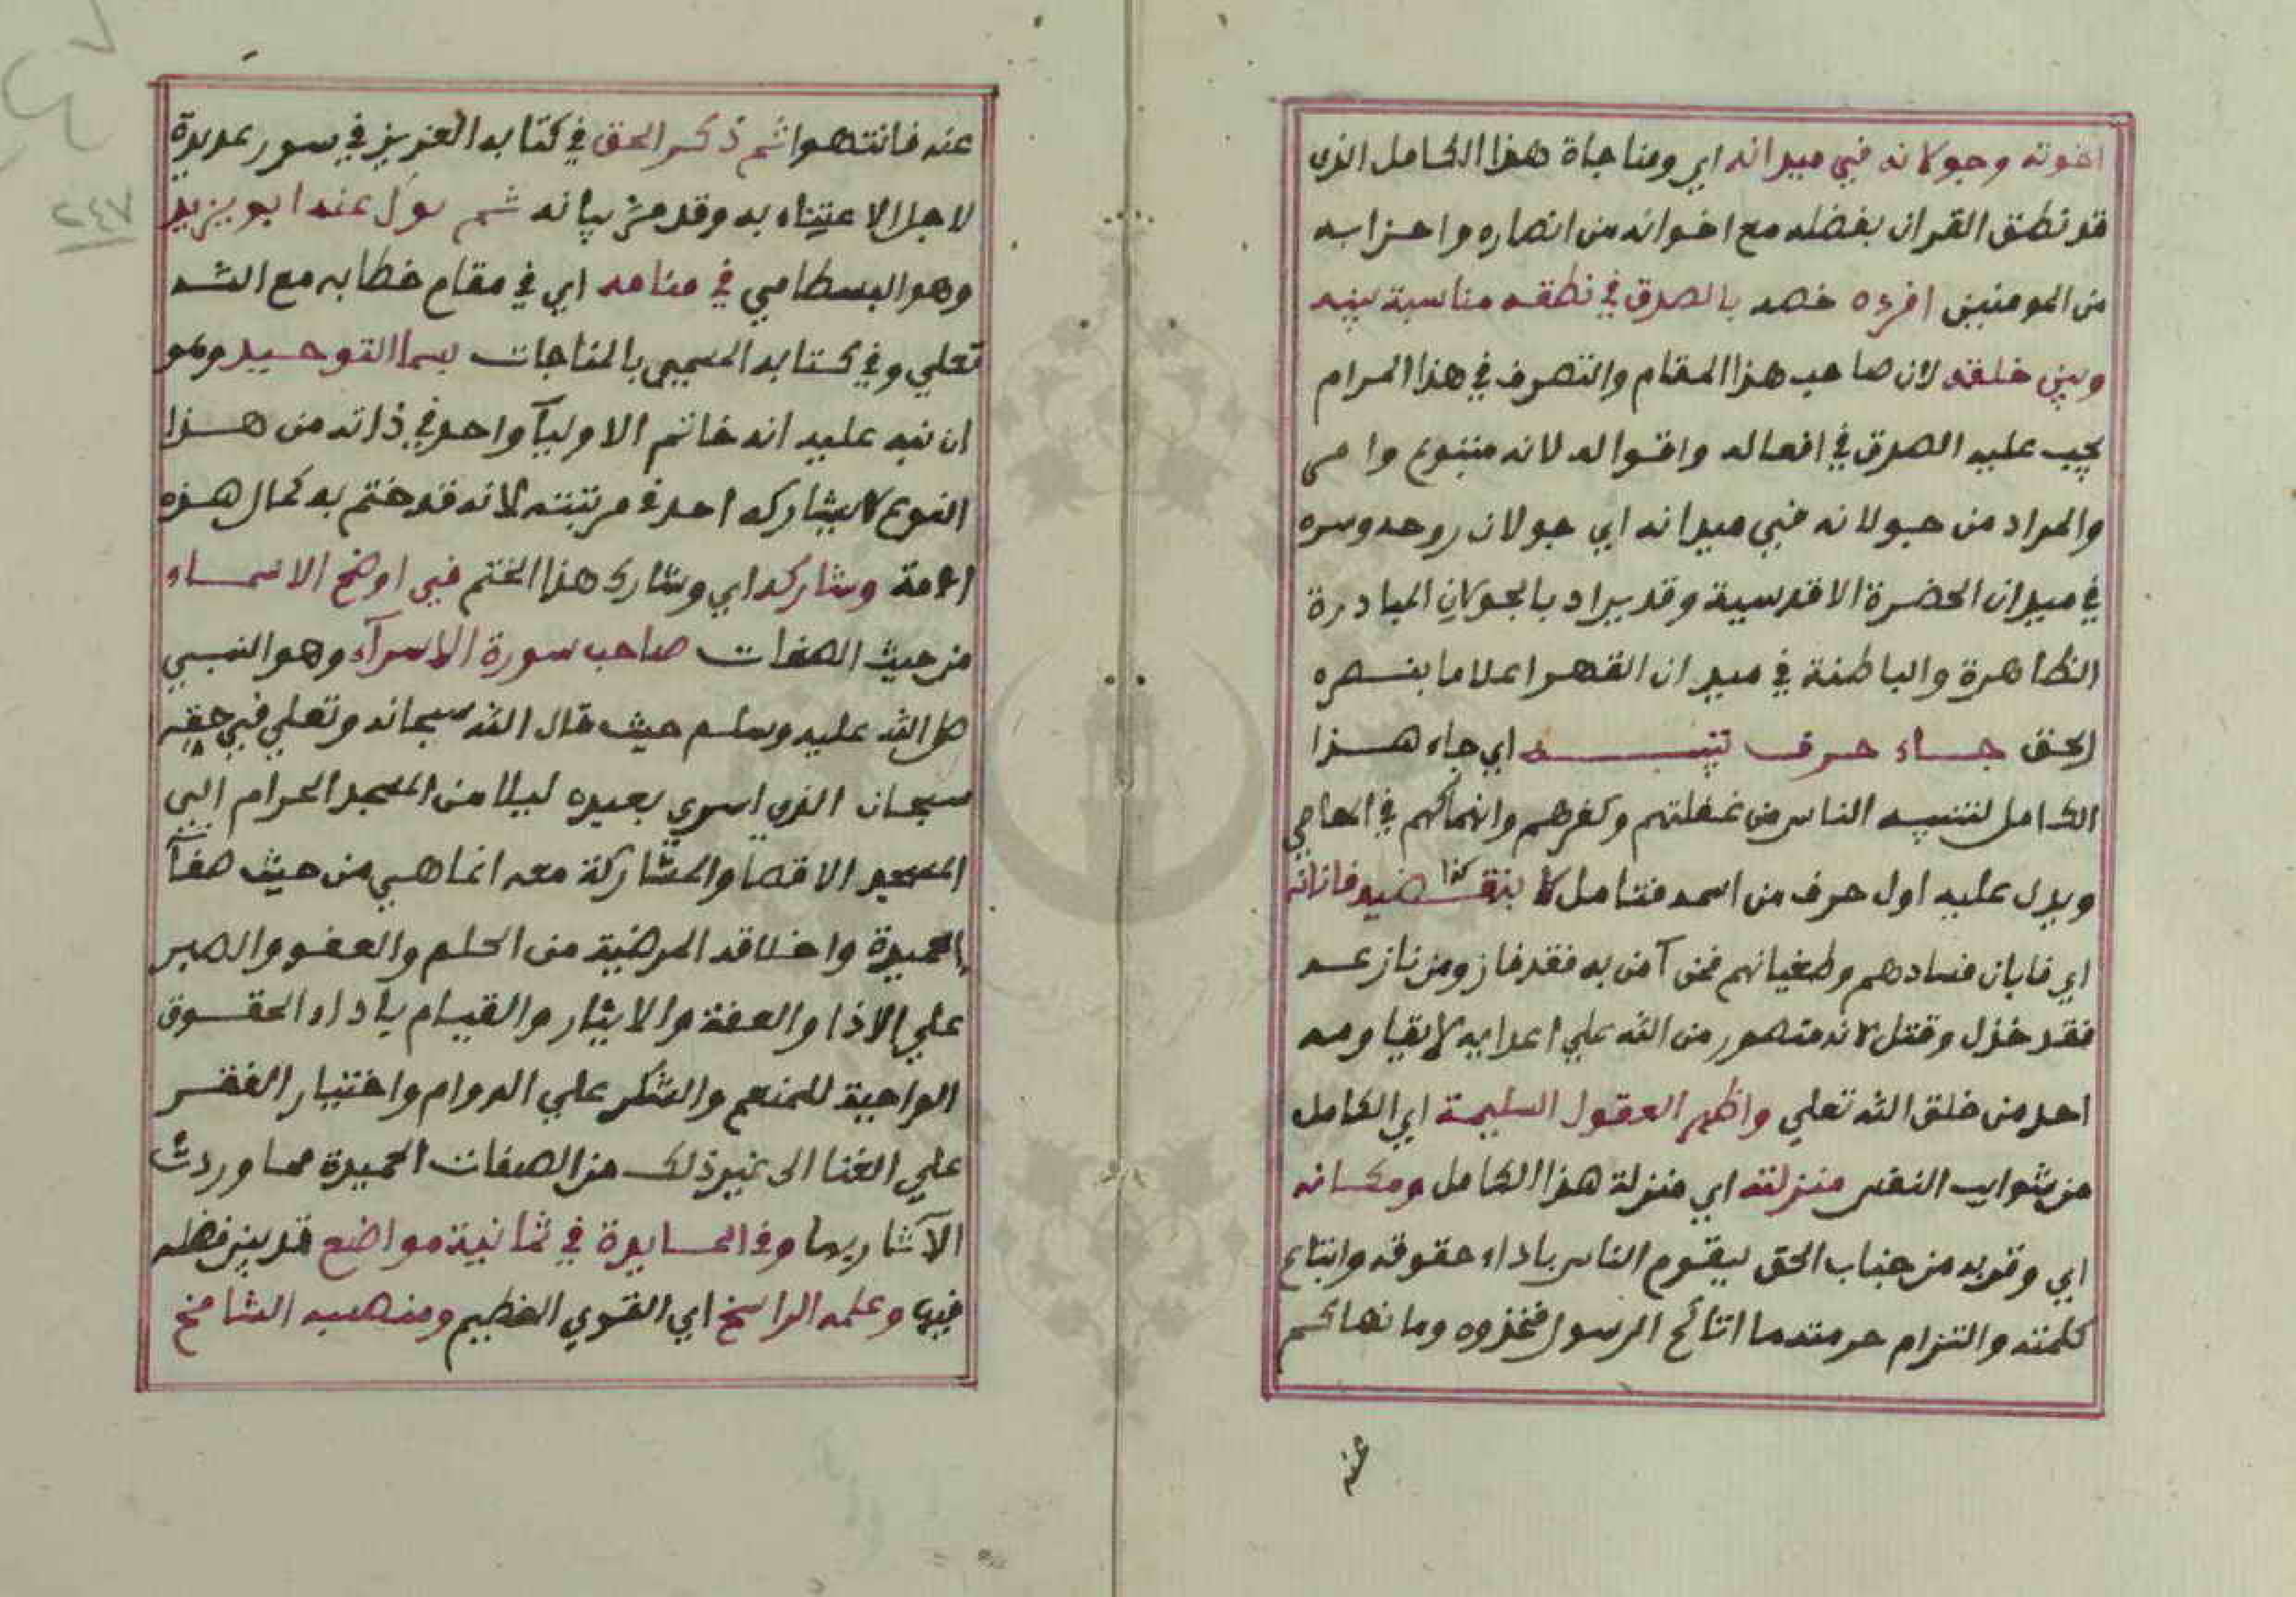 اخوته وجولانه في ميدانه اي ومناجاة هذا الكامل الذي
قد نطق القران بفضله مع اخوانه من انصاره واحزابه
من المومنين افرده خصه بالصدق في نطقه مناسبة بينه
وبين خلقه لان صاحب هذا المقام والتصرف في هذا المرام
يجب عليه الصدق في افعاله واقواله لانه متبوع وامي
والمراد من جولانه في ميدانه اي جولان روحه وسره
في ميدان الحضرة الاقدسية وقد يراد بالجولان المبادرة
الظاهرة والباطنة في ميدان القهر اعلاما بنصره
الحق جاء حرف تنبيه اي جاء هذا
الكامل لتنبيه الناس من غفلتهم وكفرهم وانهماكهم في المعاصي
ويدل عليه اول حرف من اسمه فتامل لا ينقضيه كذا فاناته
اي فابان فسادهم وطغيانهم فمن آمن به فقد فاز ومن نازعه
فقد خذل وقتل لانه منصور من الله علي اعدايه لا يقاومه
احد من خلق الله تعلي واظهر العقول السليمة اي الكامل
من شوايب النقس منزلته اي منزلة هذا الكامل ومكانه
اي وقوبه من جناب الحق ليقوم الناس باداء حقوقه واتباع
كلمته والتزام حرمته ما اتائكم الرسول فخذوه وما نهائكم
عنه
٢٤٧
عنه فانتهوا ثم ذكر الحق في كتابه العزيز في سور عديدة
لاجل الاعتناء به وقد مر بيانه ثم عند ابو يزيد
وهو البسطامي في منامه اي في مقام خطابه مع الله
تعلي وفي كتابه المسمي بالمناجات بسما التوحيد وهو
ان نبه عليه انه خاتم الاوليآ واحد في ذاته من هذا
النوع لا يشاركه احد في مرتبته لانه قد ختم به كمال هذه
الامة وشاركه اي وشارك هذا الختم في اوضح الاسماء
من حيث الصفات صاحب سورة الاسرآء وهو النبي
صل الله عليه وسلم حيث قال الله سبحانه وتعلي في حقه
سبحان الذي اسري بعبده ليلا من المسجد الحرام الي
المسجد الاقصا والمشاركة معه انما هي من حيث صفآ
الحميدة واخلاقه المرضية من الحلم والعفو والصبر
علي الاذا والعفة والايثار والقيام باداء الحقوق
الواجبة للمنعم والشكر علي الدوام واختيار الفقر
علي الغنا الى غير ذلك من الصفات الحميدة مما وردت
الآثار بها وفي المسايدة في ثمانية مواضع قد بين فضله
فيها وعلمه الراسخ اي القوي العظيم ومذهبه الشامخ